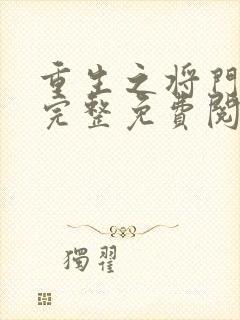 重生之将門
完整免費閱
獨翟